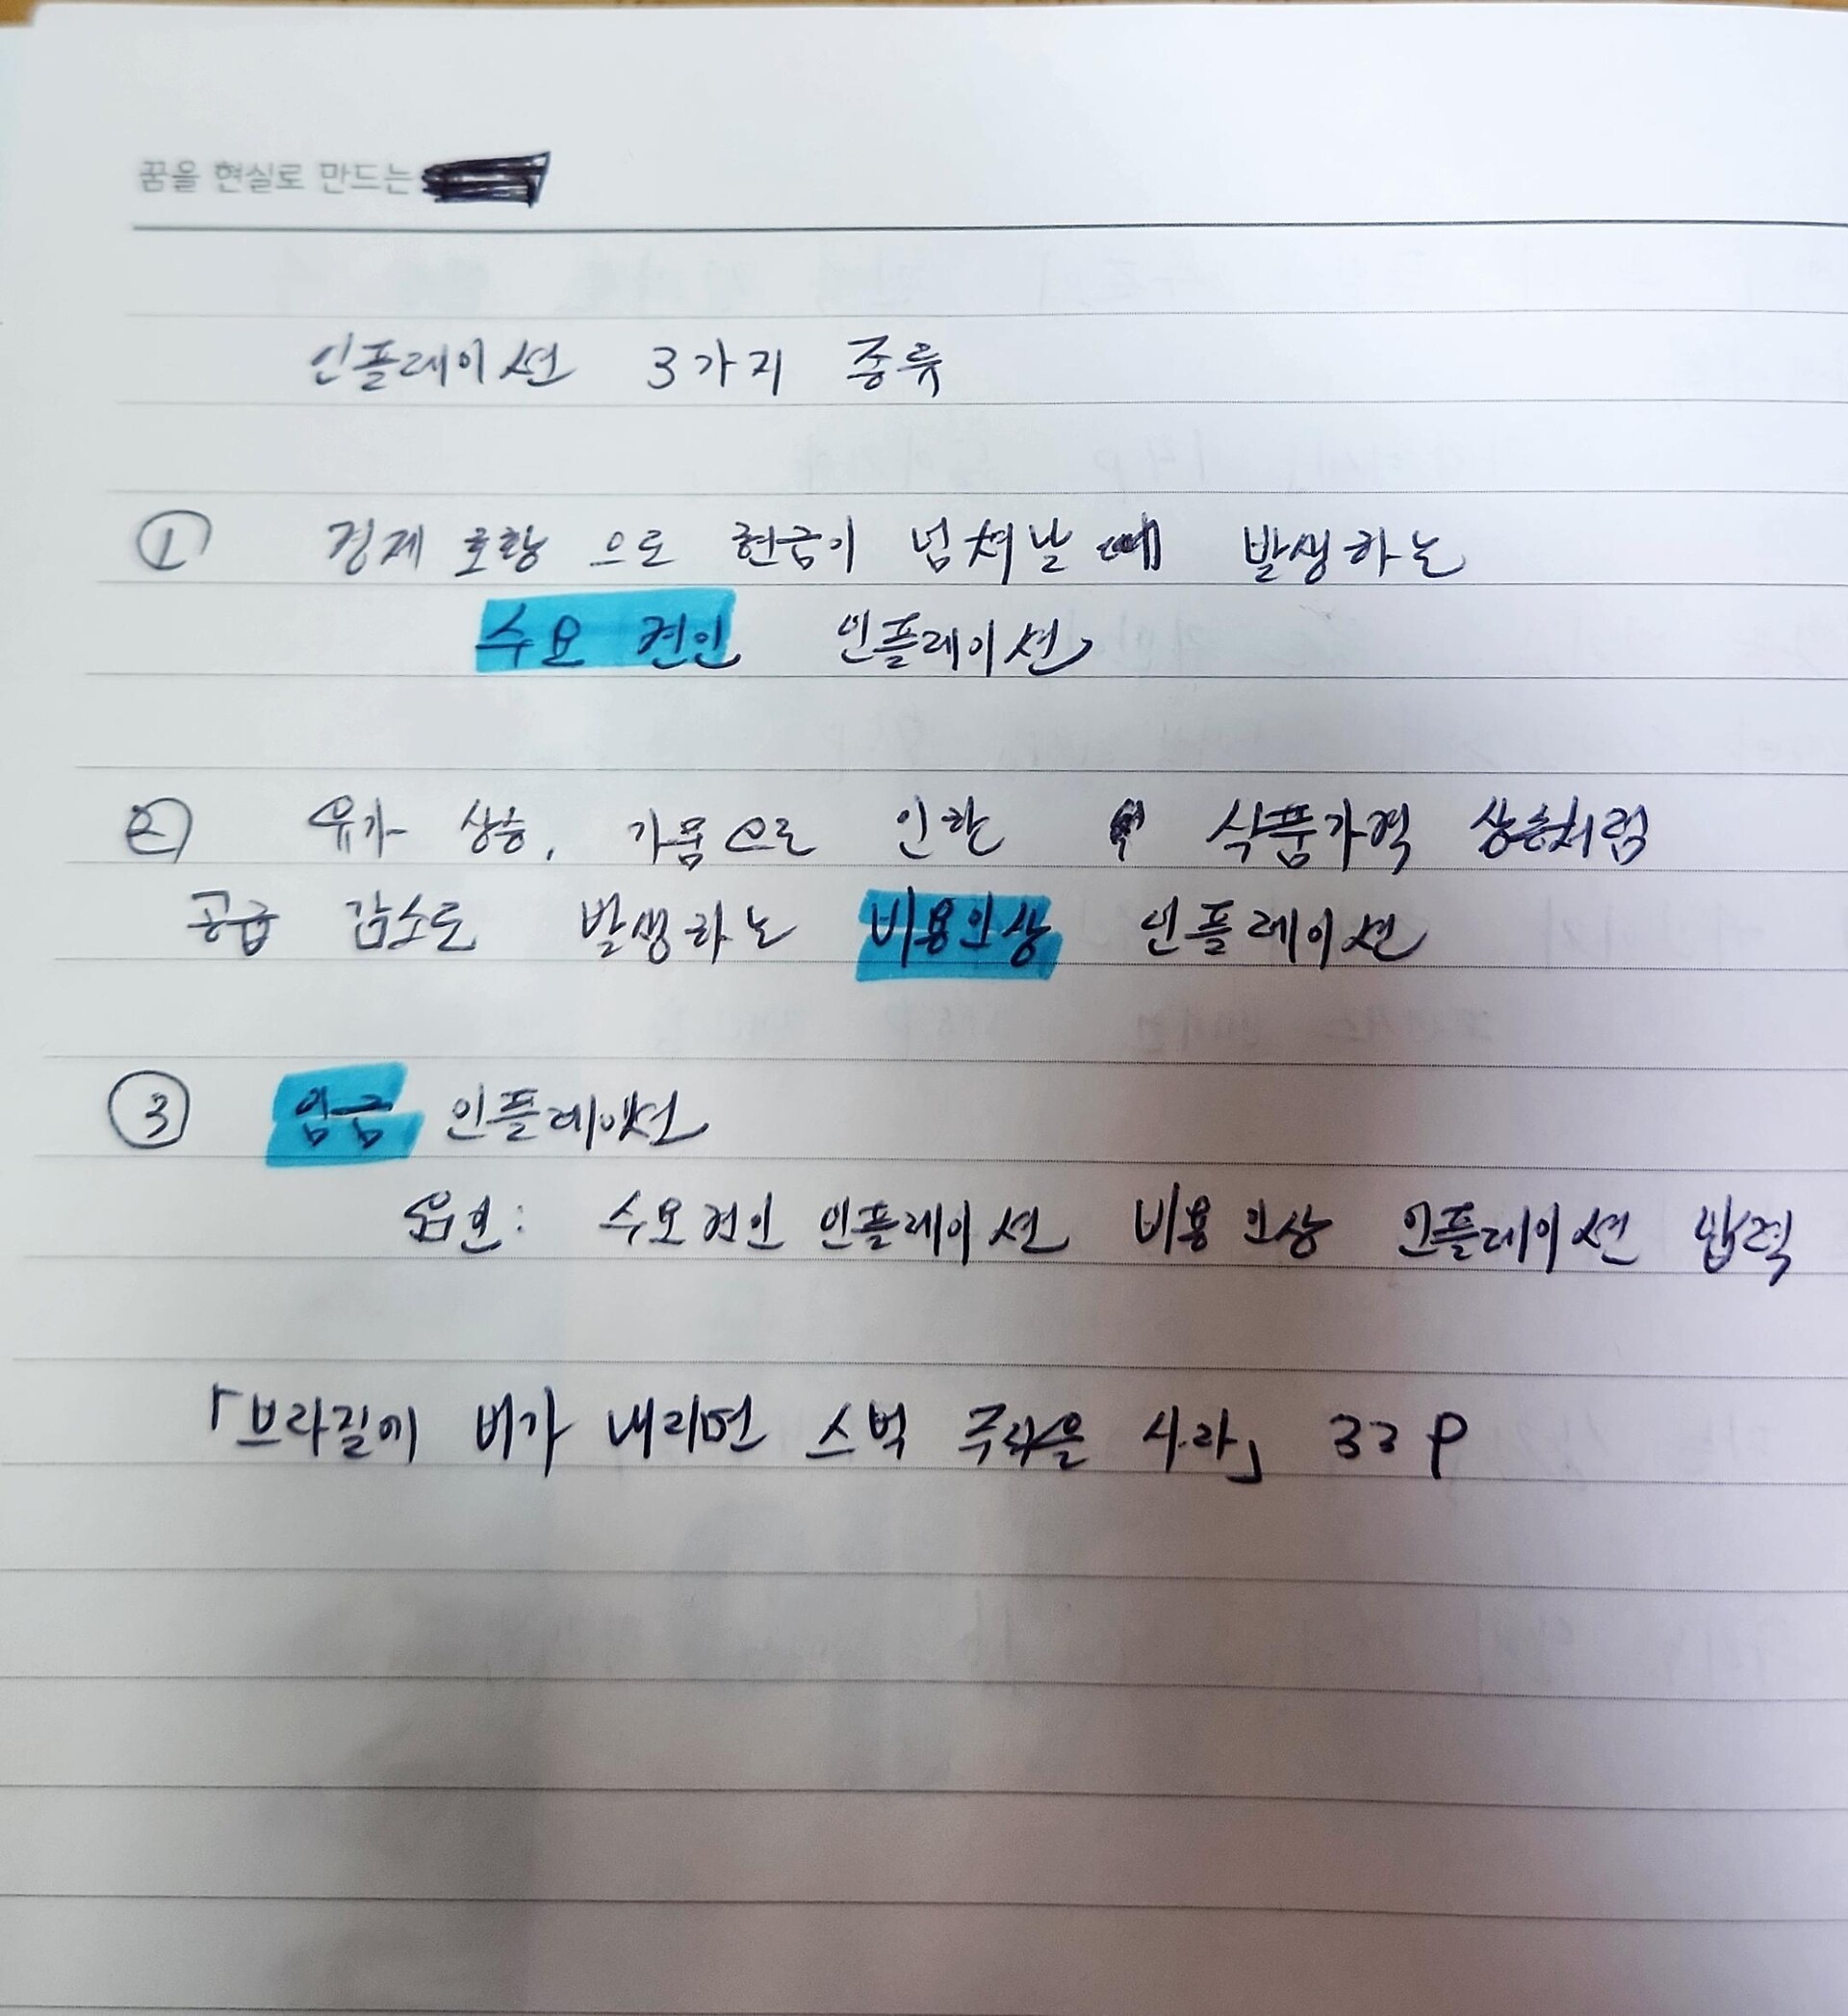 꿈을 현실로 만드는
인플레이션 3가지 종류
① 경제 호황 으로 현금이 넘쳐날 때 발생하는
수요 견인 인플레이션
② 유가 상승, 가뭄으로 인한 식품가격 상승처럼
공급 감소로 발생하는 비용인상 인플레이션
③ 임금 인플레이션
요인: 수요견인 인플레이션 비용인상 인플레이션 압력
「브라질에 비가 내리면 스벅 주식을 사라」 33p